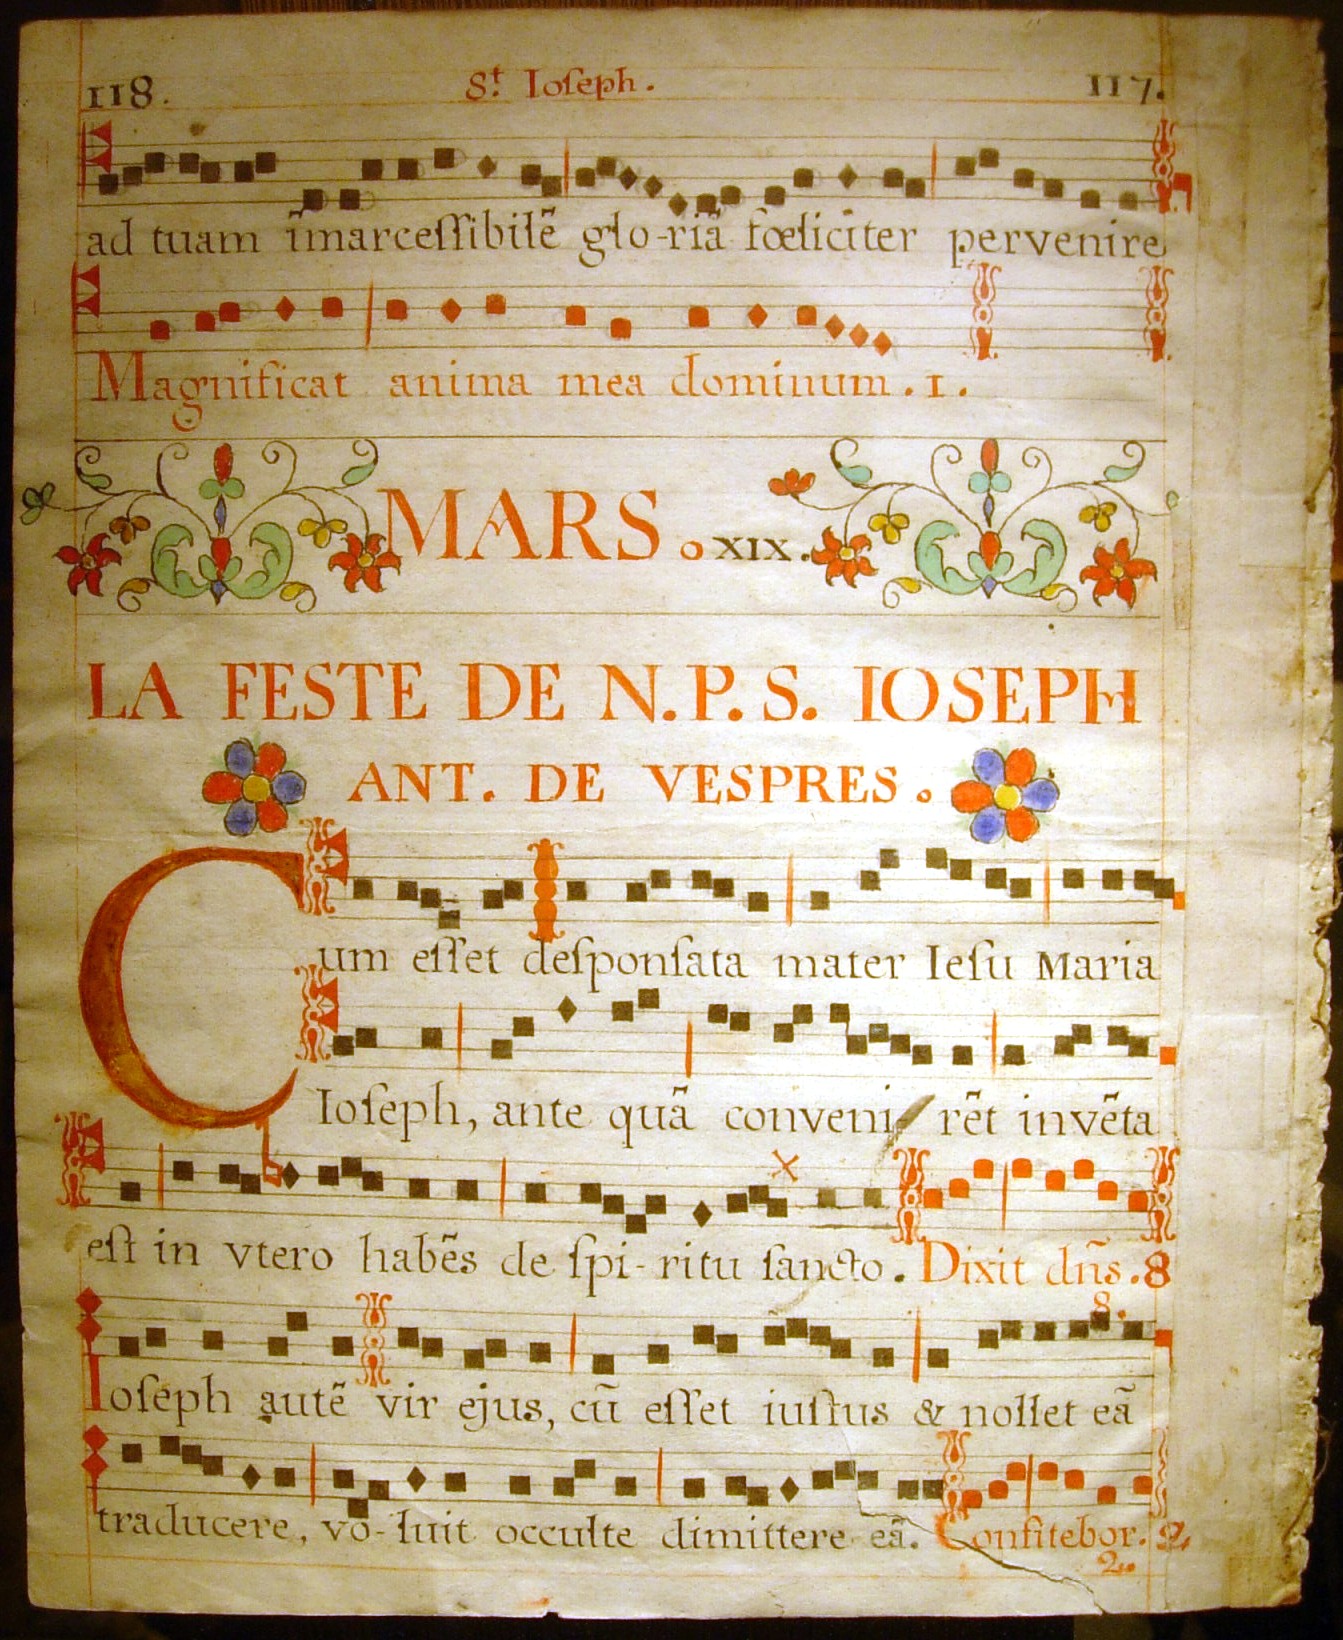 118. St. Ioſeph. 117.
ad tuam ĩmarceſſibilẽ glo-riã fœliciter pervenire
Magnificat anima mea dominum. 1.
MARS. XIX.
LA FESTE DE N.P.S. IOSEPH
ANT. DE VESPRES.
Cum eſſet deſponſata mater Ieſu Maria
Ioſeph, ante quã conveni rẽt invẽta
eſt in vtero habẽs de ſpi-ritu ſancto. Dixit dñs. 8
8.
Ioſeph autẽ vir ejus, cũ eſſet iuſtus & nollet eã
traducere, vo-luit occulte dimittere eã. Confitebor. 2.
2.